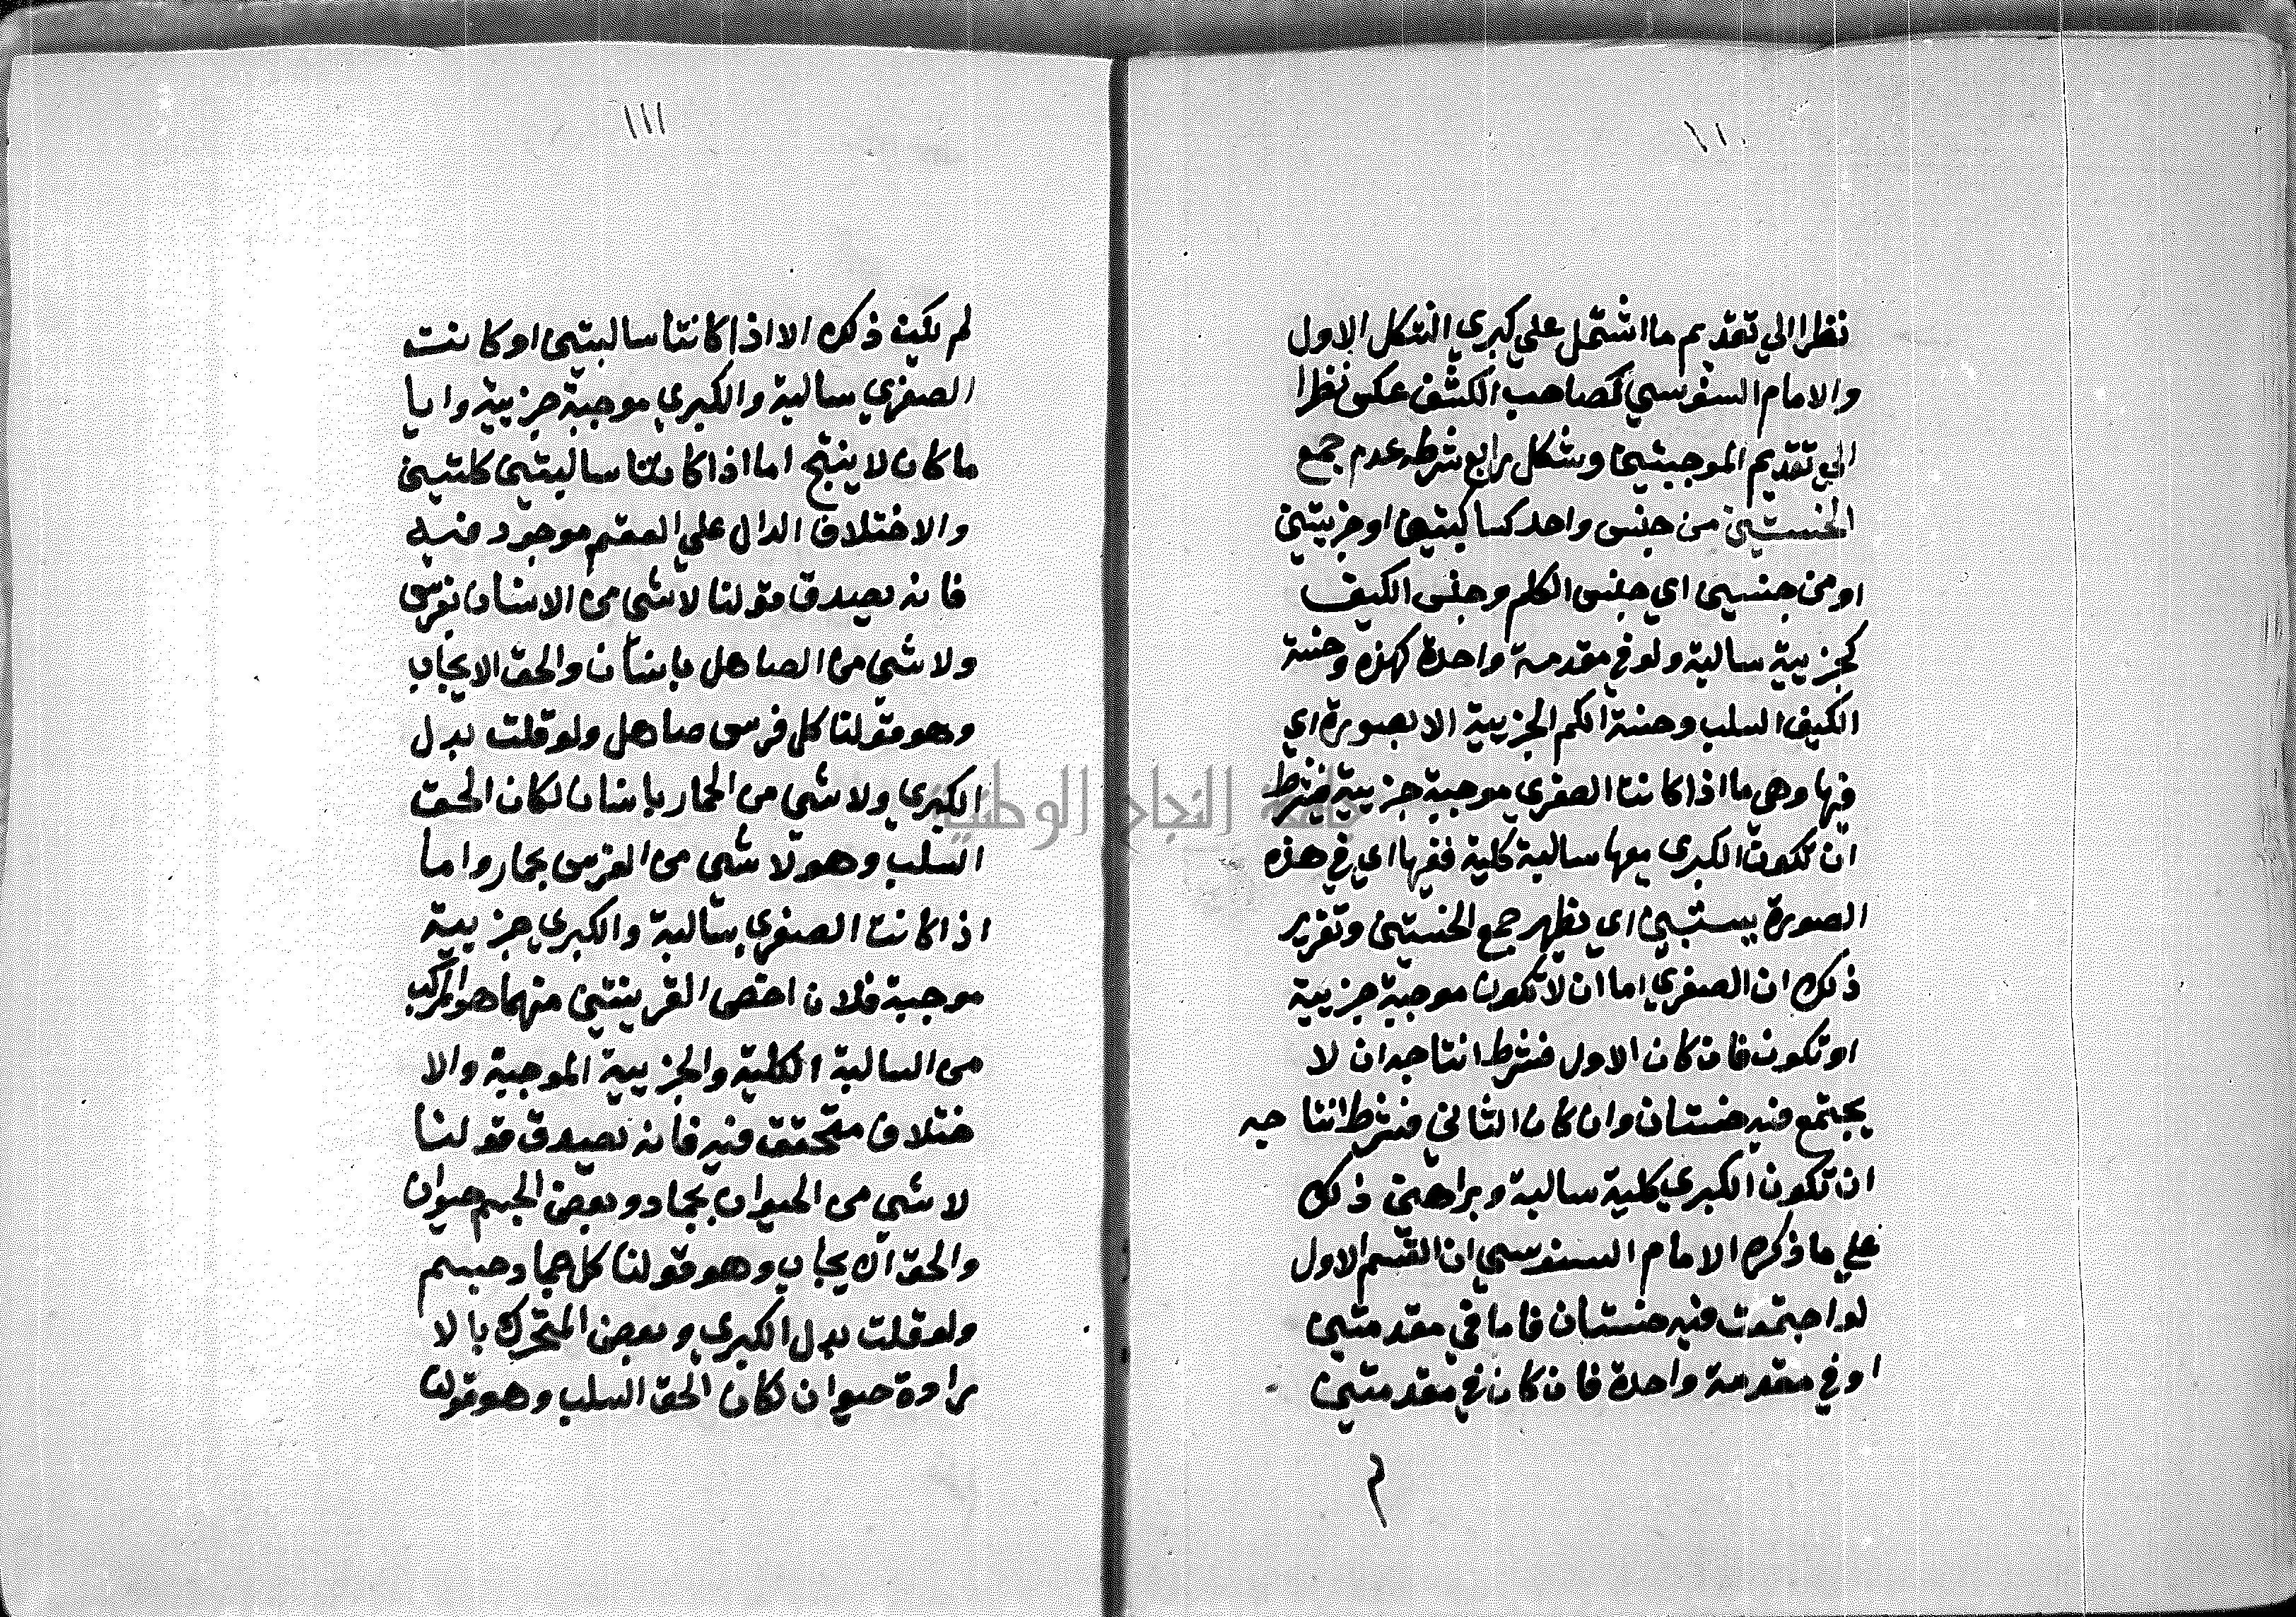 ١١٠
نظرا الي تقديم ما اشتمل علي كبري الشكل الاول
والامام السنوسي كصاحب الكشف عكس نظرا
الي تقديم الموجبتين وشكل رابع شرطه عدم جمع
الخستين من جنس واحد كسالبتين او جزييتين
او من جنسين اي جنس الكم وجنس الكيف
كجزيية سالبة ولو في مقدمة واحدة كهذه وخسة
الكيف السلب وخسة الكم الجزيية الا بصورة اي
فيها وهي ما اذا كانت الصغري موجبة جزيية فيشترط
ان تكون الكبري معها سالبة كلية ففيها اي في هذه
الصورة يستبين اي يظهر جمع الخستين وتقرير
ذلك ان الصغري اما ان لا تكون موجبة جزيية
او تكون فان كان الاول فشرط انتاجه ان لا
يجتمع فيه خستان وان كان الثاني فشرط انتا جه
ان تكون الكبري كلية سالبة وبراهين ذلك
علي ما ذكره الامام السنوسي ان القسم الاول
لو اجتمعت فيه خستان فاما في مقدمتين
او في مقدمة واحدة فان كان في مقدمتين
م
١١١
لم يكن ذلك الا اذا كانتا سالبتين او كانت
الصغري سالبة والكبري موجبة جزيية وايا
ما كان لا ينتج اما اذا كانتا سالبتين كليتين
والاختلاف الدال علي العقم موجود فيه
فانه يصدق قولنا لا شي من الانسان بفرس
ولا شي من الصاهل بانسان والحق الايجاب
وهو قولنا كل فرس صاهل ولو قلت بدل
الكبري ولا شي من الحمار بانسان لكان الحق
السلب وهو لا شي من الفرس بحمار واما
اذا كانت الصغري سالبة والكبري جزيية
موجبة فلان اخص القرينتين منهما هو المركب
من السالبة الكلية والجزيية الموجبة والا
ختلاف متحقق فيه فانه يصدق قولنا
لا شي من الحيوان بجماد وبعض الجسم حيوان
والحق الايجاب وهو قولنا كل جماد جسم
ولو قلت بدل الكبري وبعض المتحرك بالا
رادة حيوان لكان الحق السلب وهو قولنا
جامعة النجاح الوطنية